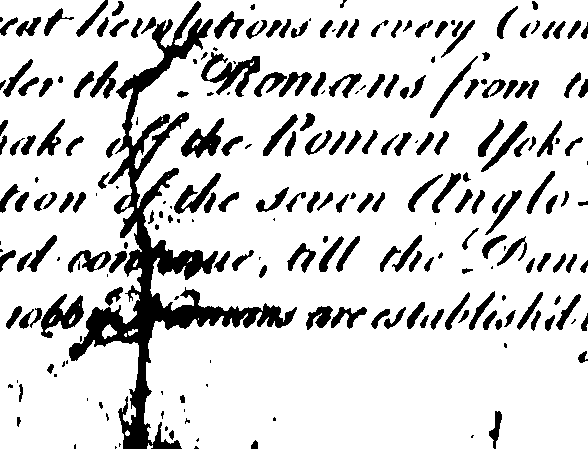 eat Revolutions in every Coun
der the Romans from t
hake off the Roman Yoke
tion of the seven Anglo-
ed continue, till the Dan
1066 ye Normans are establish'd